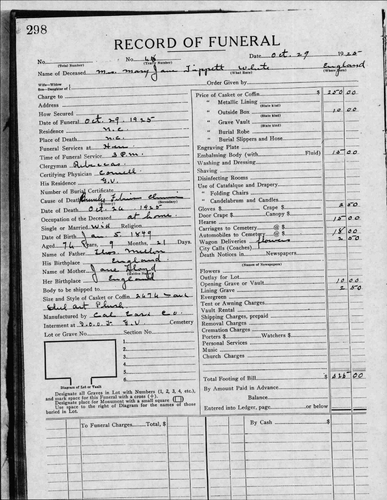 298
RECORD OF FUNERAL
No. 68 Date Oct. 29 1925
(Total Number) (Yearly Number)
Name of Deceased Mrs. Mary Jane Tippett White England
(What Race) (Where Born)
Wife—Widow
Son—Daughter of
Charge to
Address
How Secured
Date of Funeral Oct. 29, 1925
Residence N.C.
Place of Death N.C.
Funeral Services at
Time of Funeral Service 2 P.M.
Clergyman
Certifying Physician
His Residence G.V.
Number of Burial Certificate
Cause of Death
Date of Death Oct. 26 1925
Occupation of the Deceased at home
Single or Married Wid Religion
Date of Birth Jan 5 1849
Aged 76 Years 9 Months 21 Days
Name of Father
His Birthplace England
Name of Mother Jane
Her Birthplace England
Body to be shipped to
Size and Style of Casket or Coffin
Manufactured by Cal Cas. Co.
Interment at I.O.O.F. G.V. Cemetery
Lot or Grave No. Section No.
1
2
3
4
5
Diagram of Lot or Vault
Designate all Graves in Lot with Numbers (1, 2, 3, 4, etc.), and mark space for this Funeral with a cross (+).
Designate place for Monument with a small square
Use space to right of Diagram for the names of those buried in Lot.
Order Given by
Price of Casket or Coffin $250 00
" Metallic Lining
(State Kind)
" Outside Box 10 00
(State Kind)
" Grave Vault
(State Kind)
" Burial Robe
(State Kind)
" Burial Slippers and Hose
Engraving Plate
Embalming Body (with Fluid) 15 00
Washing and Dressing
Shaving
Disinfecting Rooms
Use of Catafalque and Drapery
" Folding Chairs
" Candelabrum and Candles
Gloves $ Crape $ 2 50
Door Crape Canopy $
Hearse 15 00
Carriages to Cemetery @ $
Automobiles to Cemetery @ $ 18 00
Wagon Deliveries flowers 2 50
City Calls (Coaches)
Death Notices in Newspapers
(Names of Newspapers)
Flowers
Outlay for Lot
Opening Grave or Vault 10 00
Lining Grave 2 50
Evergreen
Tent or Awning Charges
Vault Rental
Shipping Charges, prepaid
Removal Charges
Cremation Charges
Porters $ Watchers $
Personal Services
Music
Church Charges
Total Footing of Bill $
By Amount Paid in Advance
Balance
Entered into Ledger, page or below
To Funeral Charges, Total $ By Cash $